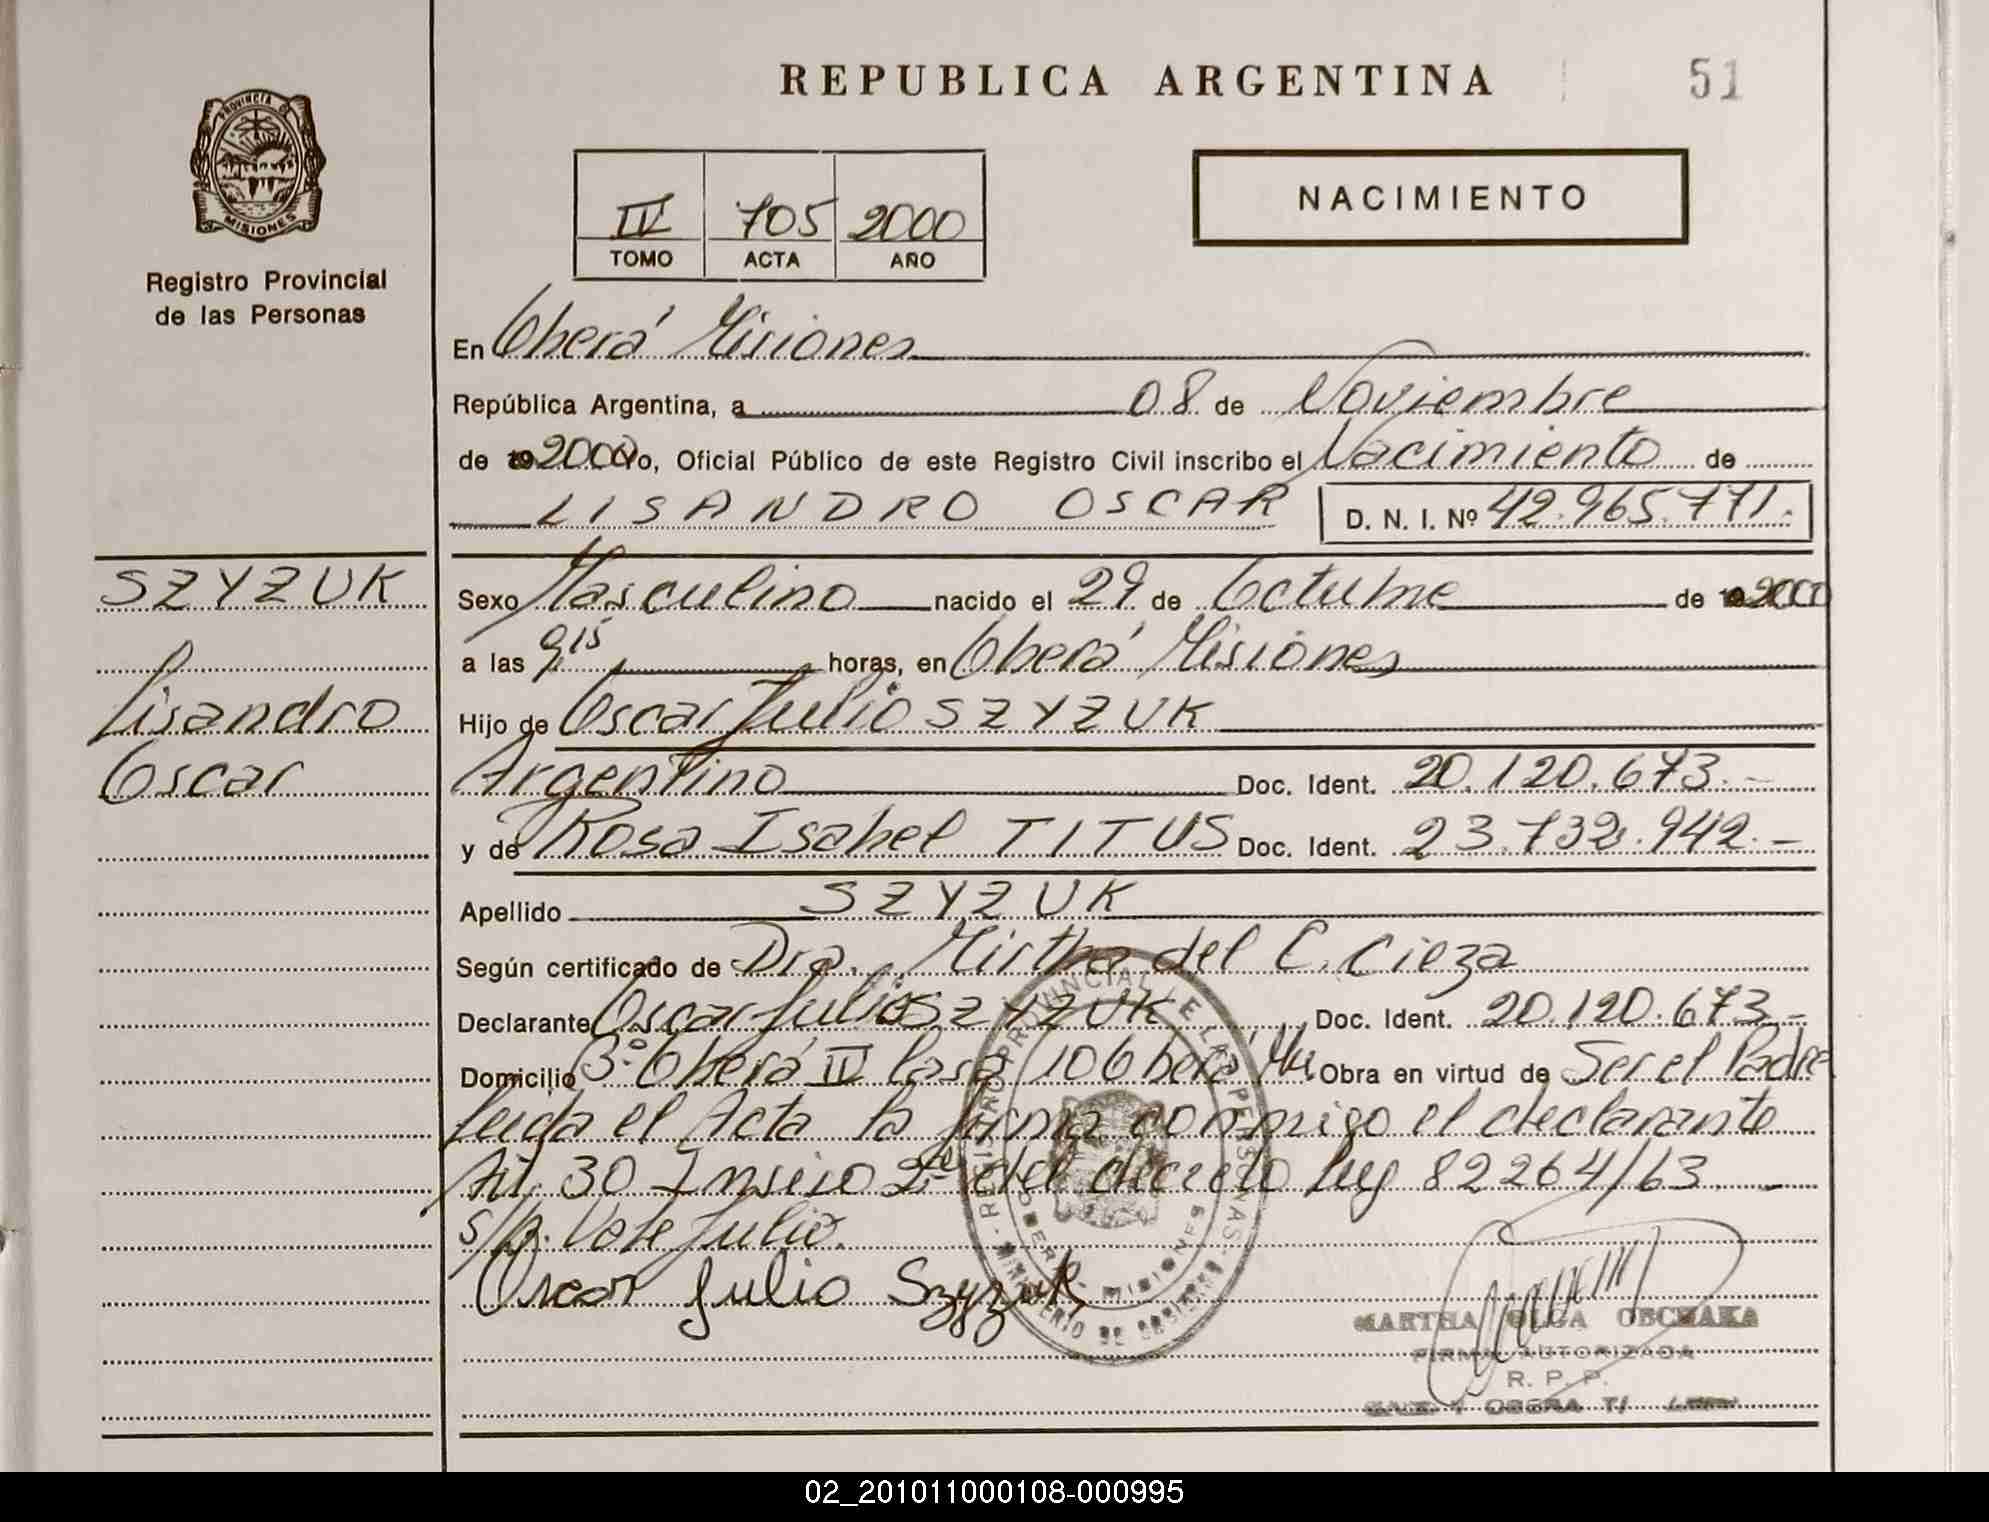 REPUBLICA ARGENTINA
51
PROVINCIA D
MISIONES
Registro Provincial
de las Personas
IV 705 2000
TOMO ACTA AÑO
NACIMIENTO
En Oberá Misiones
República Argentina, a 08 de Noviembre
de 19 2000 Yo, Oficial Público de este Registro Civil inscribo el Nacimiento de
LISANDRO OSCAR D. N. I. Nº 42.965.771.
SZYZUK
Lisandro
Oscar
Sexo Masculino nacido el 29 de Octubre de 19 2000
a las 9,15 horas, en Oberá Misiones
Hijo de Oscar Julio SZYZUK
Argentino Doc. Ident. 20.120.673.-
y de Rosa Isabel TITUS Doc. Ident. 23.732.942.-
Apellido SZYZUK
Según certificado de Dra. Mirtha del C. Cieza
Declarante Oscar Julio SZYZUK Doc. Ident. 20.120.673.-
Domicilio Bº Oberá IV Casa 10 Oberá Mnes. Obra en virtud de Ser el Padre
Leida el Acta la firma conmigo el declarante
Art. 30 Insiso 2º del decreto ley 82264/63.-
s/p. Vale Julio.
Oscar Julio Szyzuk
REGISTRO PROVINCIAL DE LAS PERSONAS
MISIONES
MINISTERIO DE GOBIERNO
MARTHA OLGA OBCHAKA
FIRMA AUTORIZADA
R. P. P.
OBERA
02_201011000108-000995